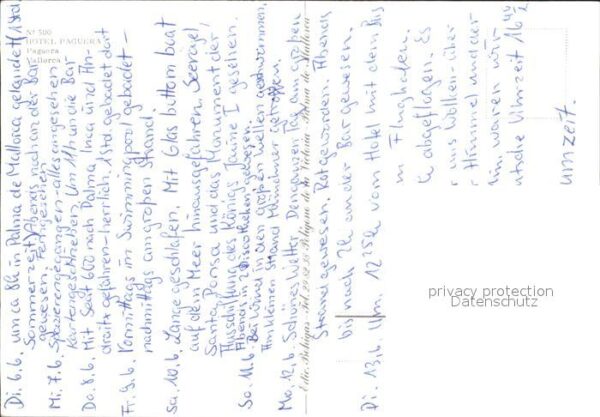 Nº 500
HOTEL PAGUERA
Paguera
Mallorca
Di. 6.6. um ca 8h in Palma de Mallorca gelandet (1 Std
Sommerzeit) Abends noch an der Bar
gewesen. Ferngesehen
Mi. 7.6. Spazierengegangen - alles angesehen
Karten geschrieben. Um 11h in die Bar
Do. 8.6. Mit Seat 600 nach Palma, Inca und An-
draitx gefahren - herrlich. 1 Std gebadet dort
Fr. 9.6. Vormittags im Swimmingpool gebadet -
nachmittags am großen Strand
Sa. 10.6. Lange geschlafen. Mit Glas bottom boat
auf dem Meer hinausgefahren. Seeregel
Santa Ponsa und das Monument der
Ausschiffung des Königs Jaime I gesehen.
Abends in 2 Discotheken gewesen.
So. 11.6. Bei Wind in den großen Wellen geschwommen,
Am kleinen Strand Münchner getroffen.
Mo. 12.6. Schönes Wetter. Den ganzen Tag am großen
Strand gewesen. Rot geworden. Abends
bis nach 2h an der Bar gewesen.
Di. 13.6. Um 12 25h vom Hotel mit dem Bus
m Flughafen.
h abgeflogen. Es
r uns Wolken - über
r Himmel und der
1m. waren wir
tsche Uhrzeit 16 40
umzeit.
Edic. Bohigas - Tel. 29 52 35 Bohigas de la Victoria - Palma de Mallorca
privacy protection
Datenschutz